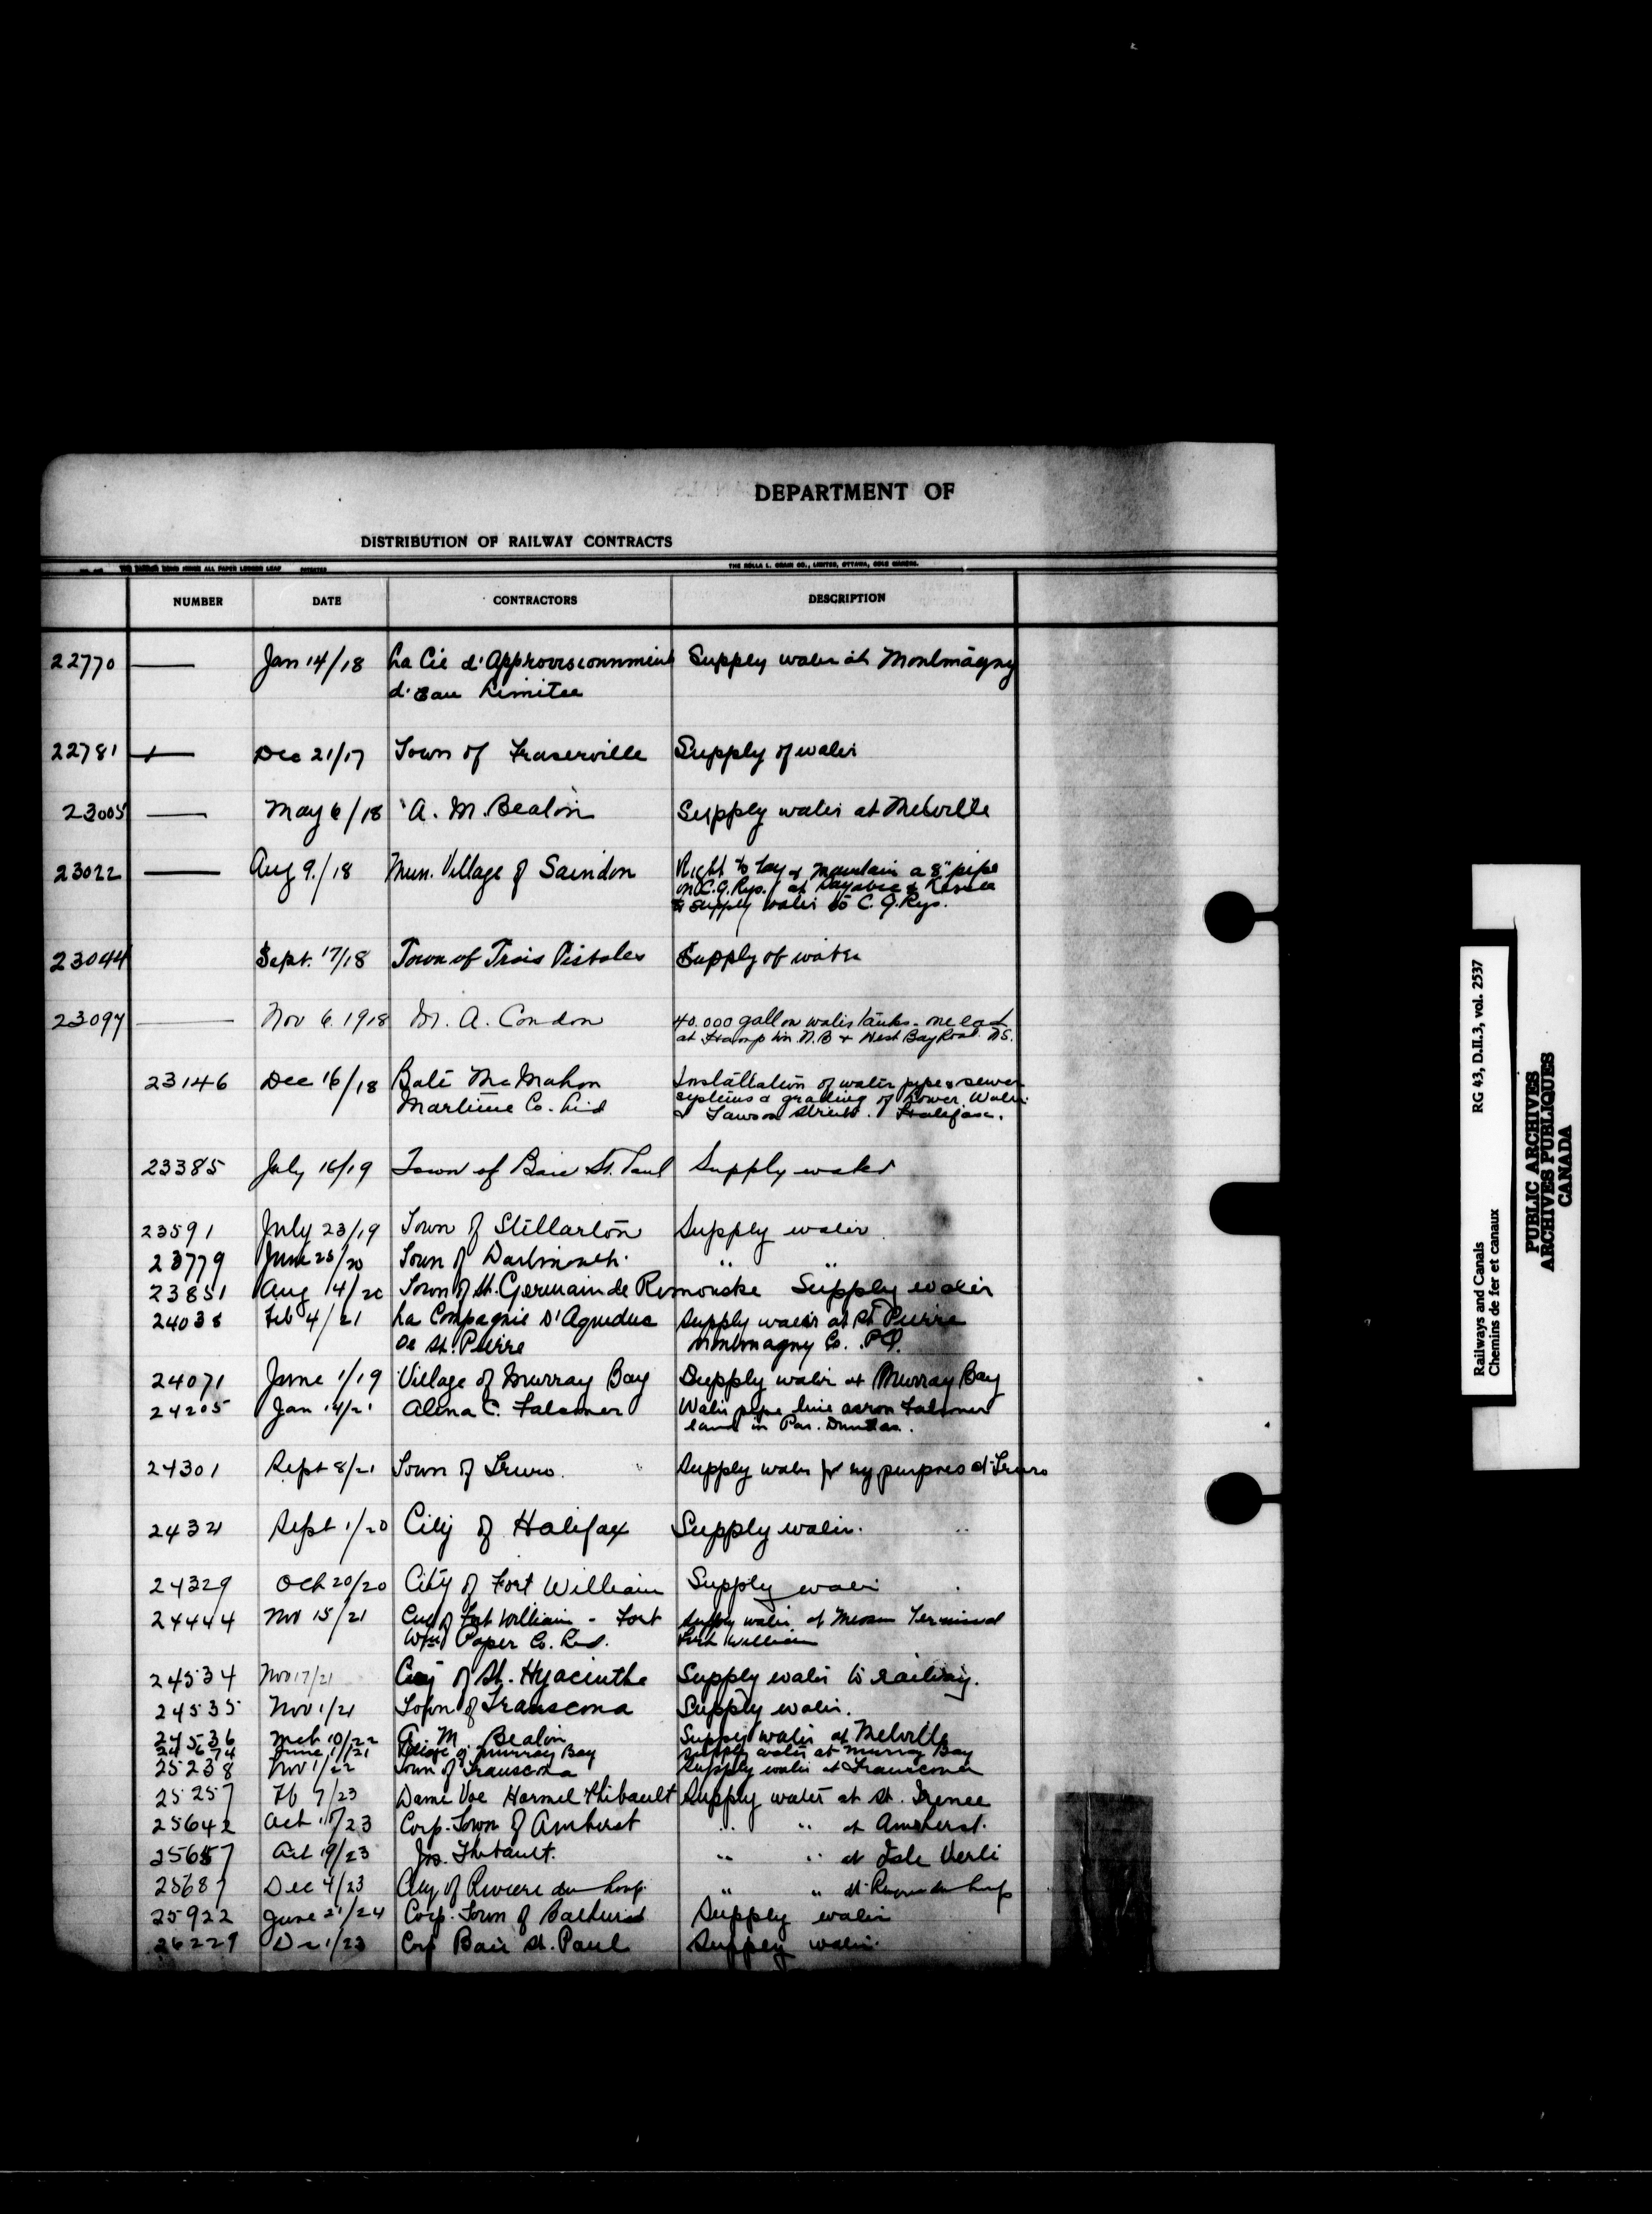 DEPARTMENT OF
DISTRIBUTION OF RAILWAY CONTRACTS
THE ROLLA L. CRAIN CO., LIMITED, OTTAWA, SOLE MAKERS.
NUMBER DATE CONTRACTORS DESCRIPTION
22770 — Jan 14/18 La Cie d'Approvisionnment Supply water at Montmagny
d'Eau Limitee
22781 — Dec 21/17 Town of Fraserville Supply of water
23005 — May 6/18 A. M. Beaton Supply water at Melville
23022 — Aug 9./18 Mun. Village of Saindon Right to lay & maintain a 8" pipe
on C.G.Rys. at Sayabec &
& supply water to C.G.Rys.
23044 Sept. 17/18 Town of Trois Pistoles Supply of water
23097 — Nov 6. 1918 M. A. Condon 40.000 gallon water tanks - one each
at N.B & West Bay Road N.S.
23146 Dec 16/18 Bate McMahon Installation of water pipe & sewer
Maritime Co. Ltd systems & grading of Power, Water
& Lawson Streets. Halifax.
23385 July 16/19 Town of Baie St. Paul Supply water
23591 July 23/19 Town of Stellarton Supply water
23779 June 25/20 Town of Dartmouth. " "
23851 Aug 14/20 Town of St. Germain de Remouske Supply water
24038 Feb 4/21 La Compagnie D'Aqueduc Supply water at St Pierre
De St. Pierre Montmagny Co. P.Q.
24071 June 1/19 Village of Murray Bay Supply water at Murray Bay
24205 Jan 14/21 Alena C. Falconer Water pipe line across Falconer
land in Par. Dundas.
24301 Sept 8/21 Town of Truro. Supply water for ry purposes at Truro
24321 Sept 1/20 City of Halifax Supply water.
24329 Oct 20/20 City of Fort William Supply water
24444 Nov 15/21 City of Fort William - Fort Supply water at Mission Terminal
Wm Paper Co. Ltd. Fort William
24534 Nov 17/21 City of St. Hyacinthe Supply water to railway.
24535 Nov 1/21 Town of Transcona Supply water.
24536 Mch 10/22 A. M Beaton Supply water at Melville
24674 June 1/21 Village of Murray Bay Supply water at Murray Bay
25238 Nov 1/22 Town of Transcona Supply water at Transcona
25257 Fb 7/23 Dame Vve Harmel Thibault Supply water at St. Irenee
25642 Oct 17/23 Corp. Town of Amherst " " at Amherst.
25657 Oct 19/23 Jos. Thibault. " " at Isle Verte
25687 Dec 4/23 City of Riviere du Loup " " at Riviere du Loup
25922 June 21/24 Corp. Town of Bathurst Supply water
26229 De 1/23 Corp Baie St. Paul Supply water.
Railways and Canals RG 43, D.II.3, vol. 2537
Chemins de fer et canaux
PUBLIC ARCHIVES
ARCHIVES PUBLIQUES
CANADA